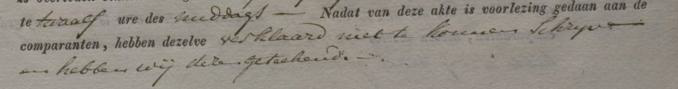 te twaalf ure des middags — Nadat van deze akte is voorlezing gedaan aan de
comparanten, hebben dezelve verklaard niet te konnen Schryve
en hebben wij deze geteekend. —.